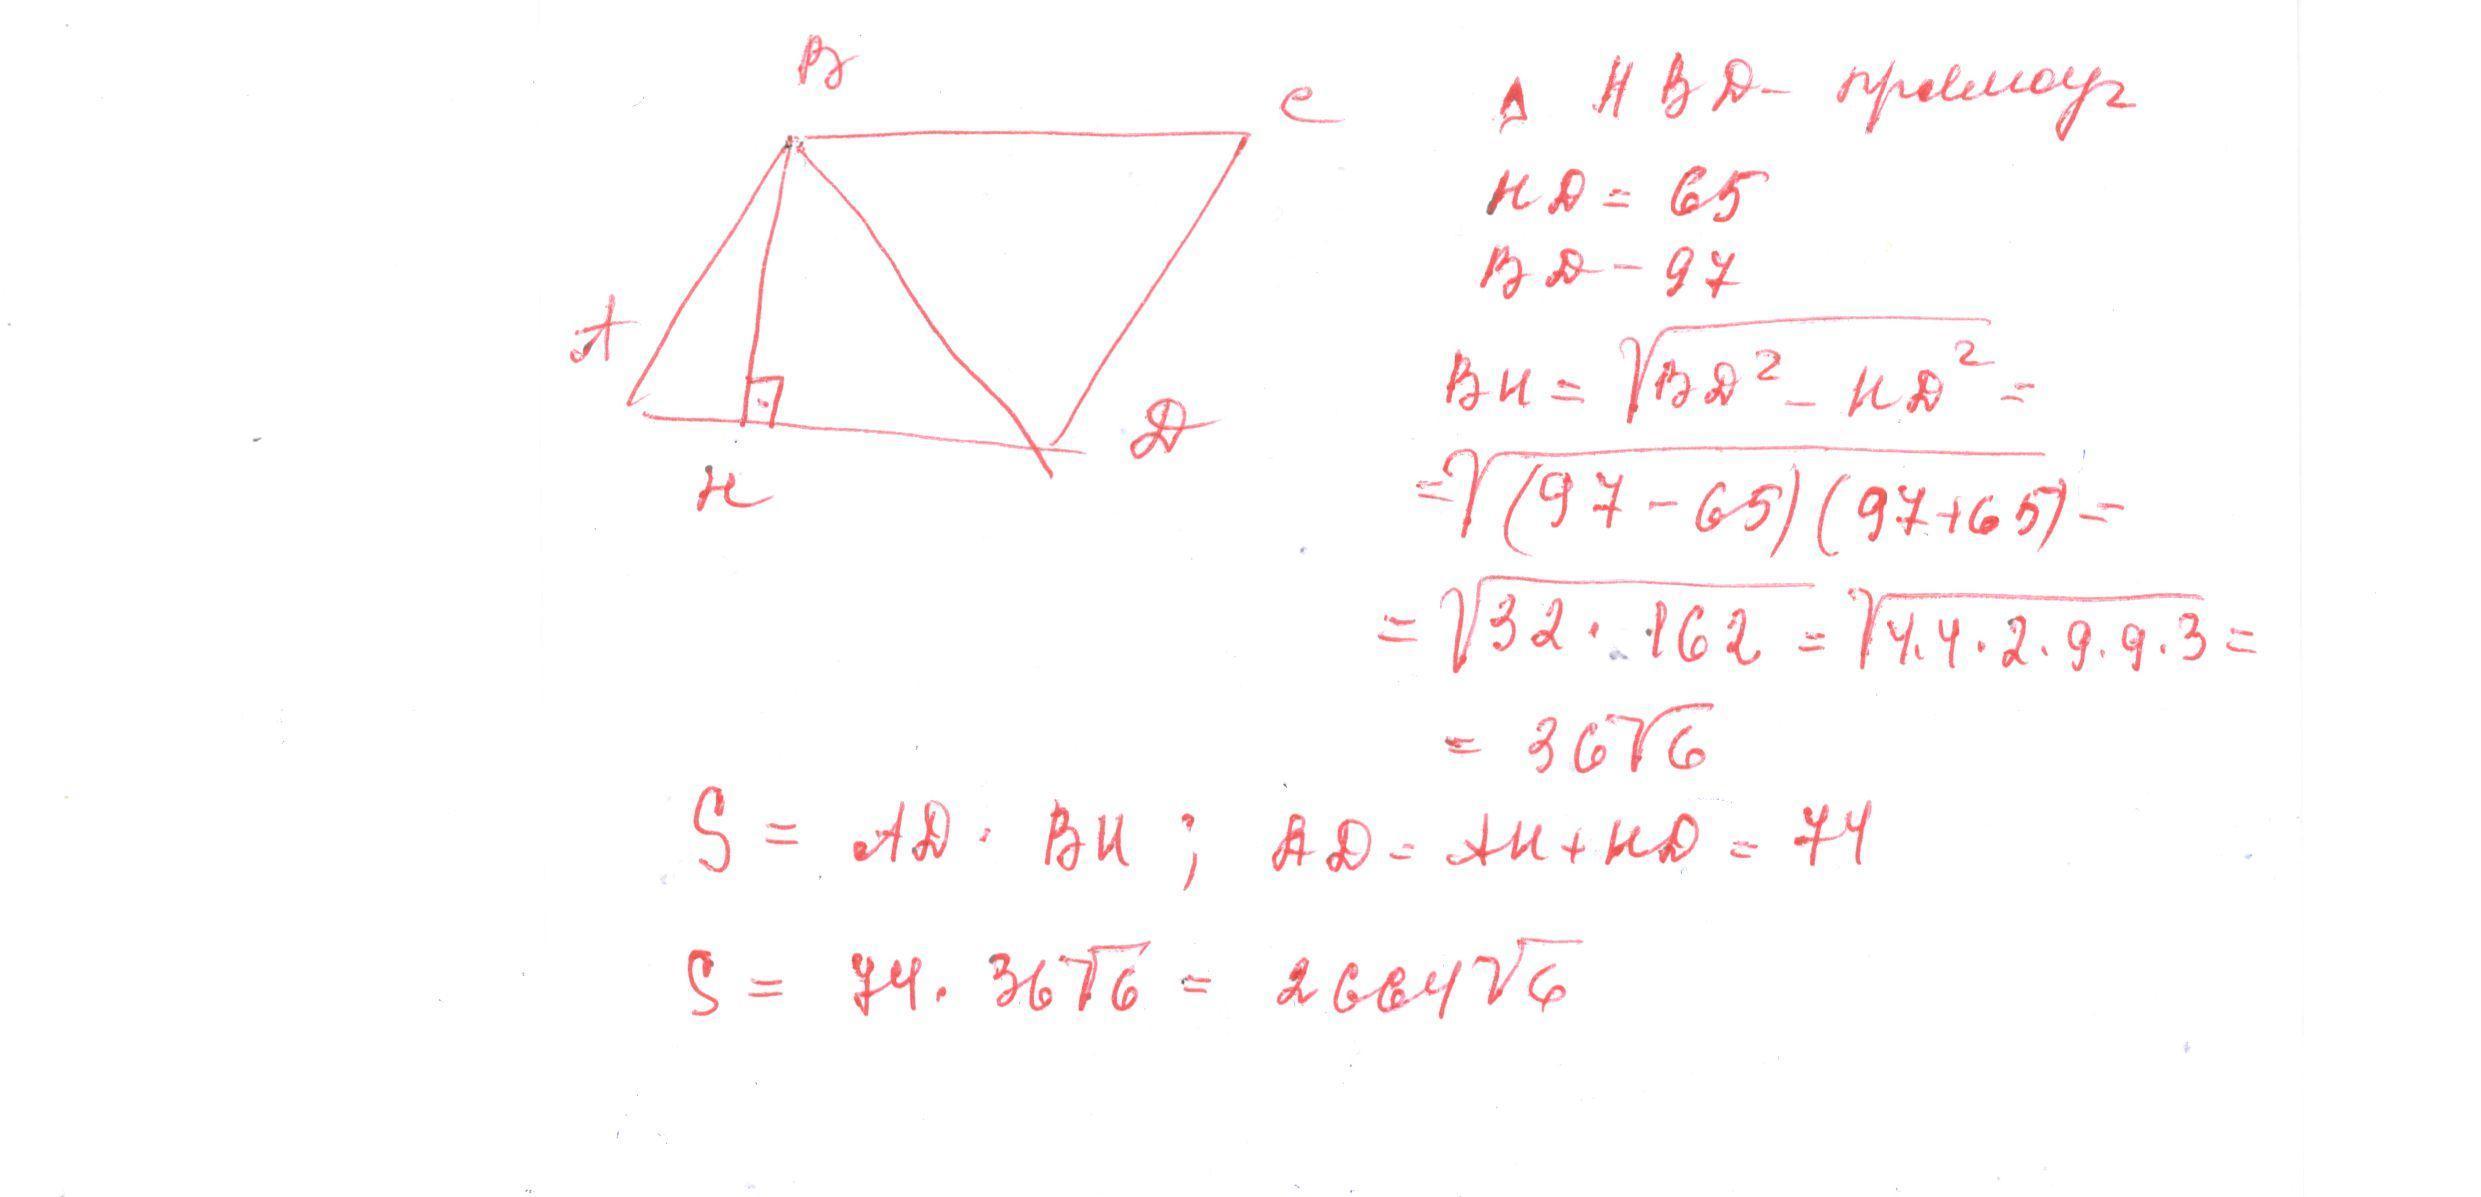 B
C
A
D
H
Δ HBD - прямоуг
HD = 65
BD - 97
BH = √BD² - HD² =
= √(97 - 65)(97 + 65) =
= √32 · 162 = √4.4 · 2 · 9 . 9 . 3 =
= 36√6
S = AD · BH ; AD = AH + HD = 74
S = 74 · 36√6 = 2664√6